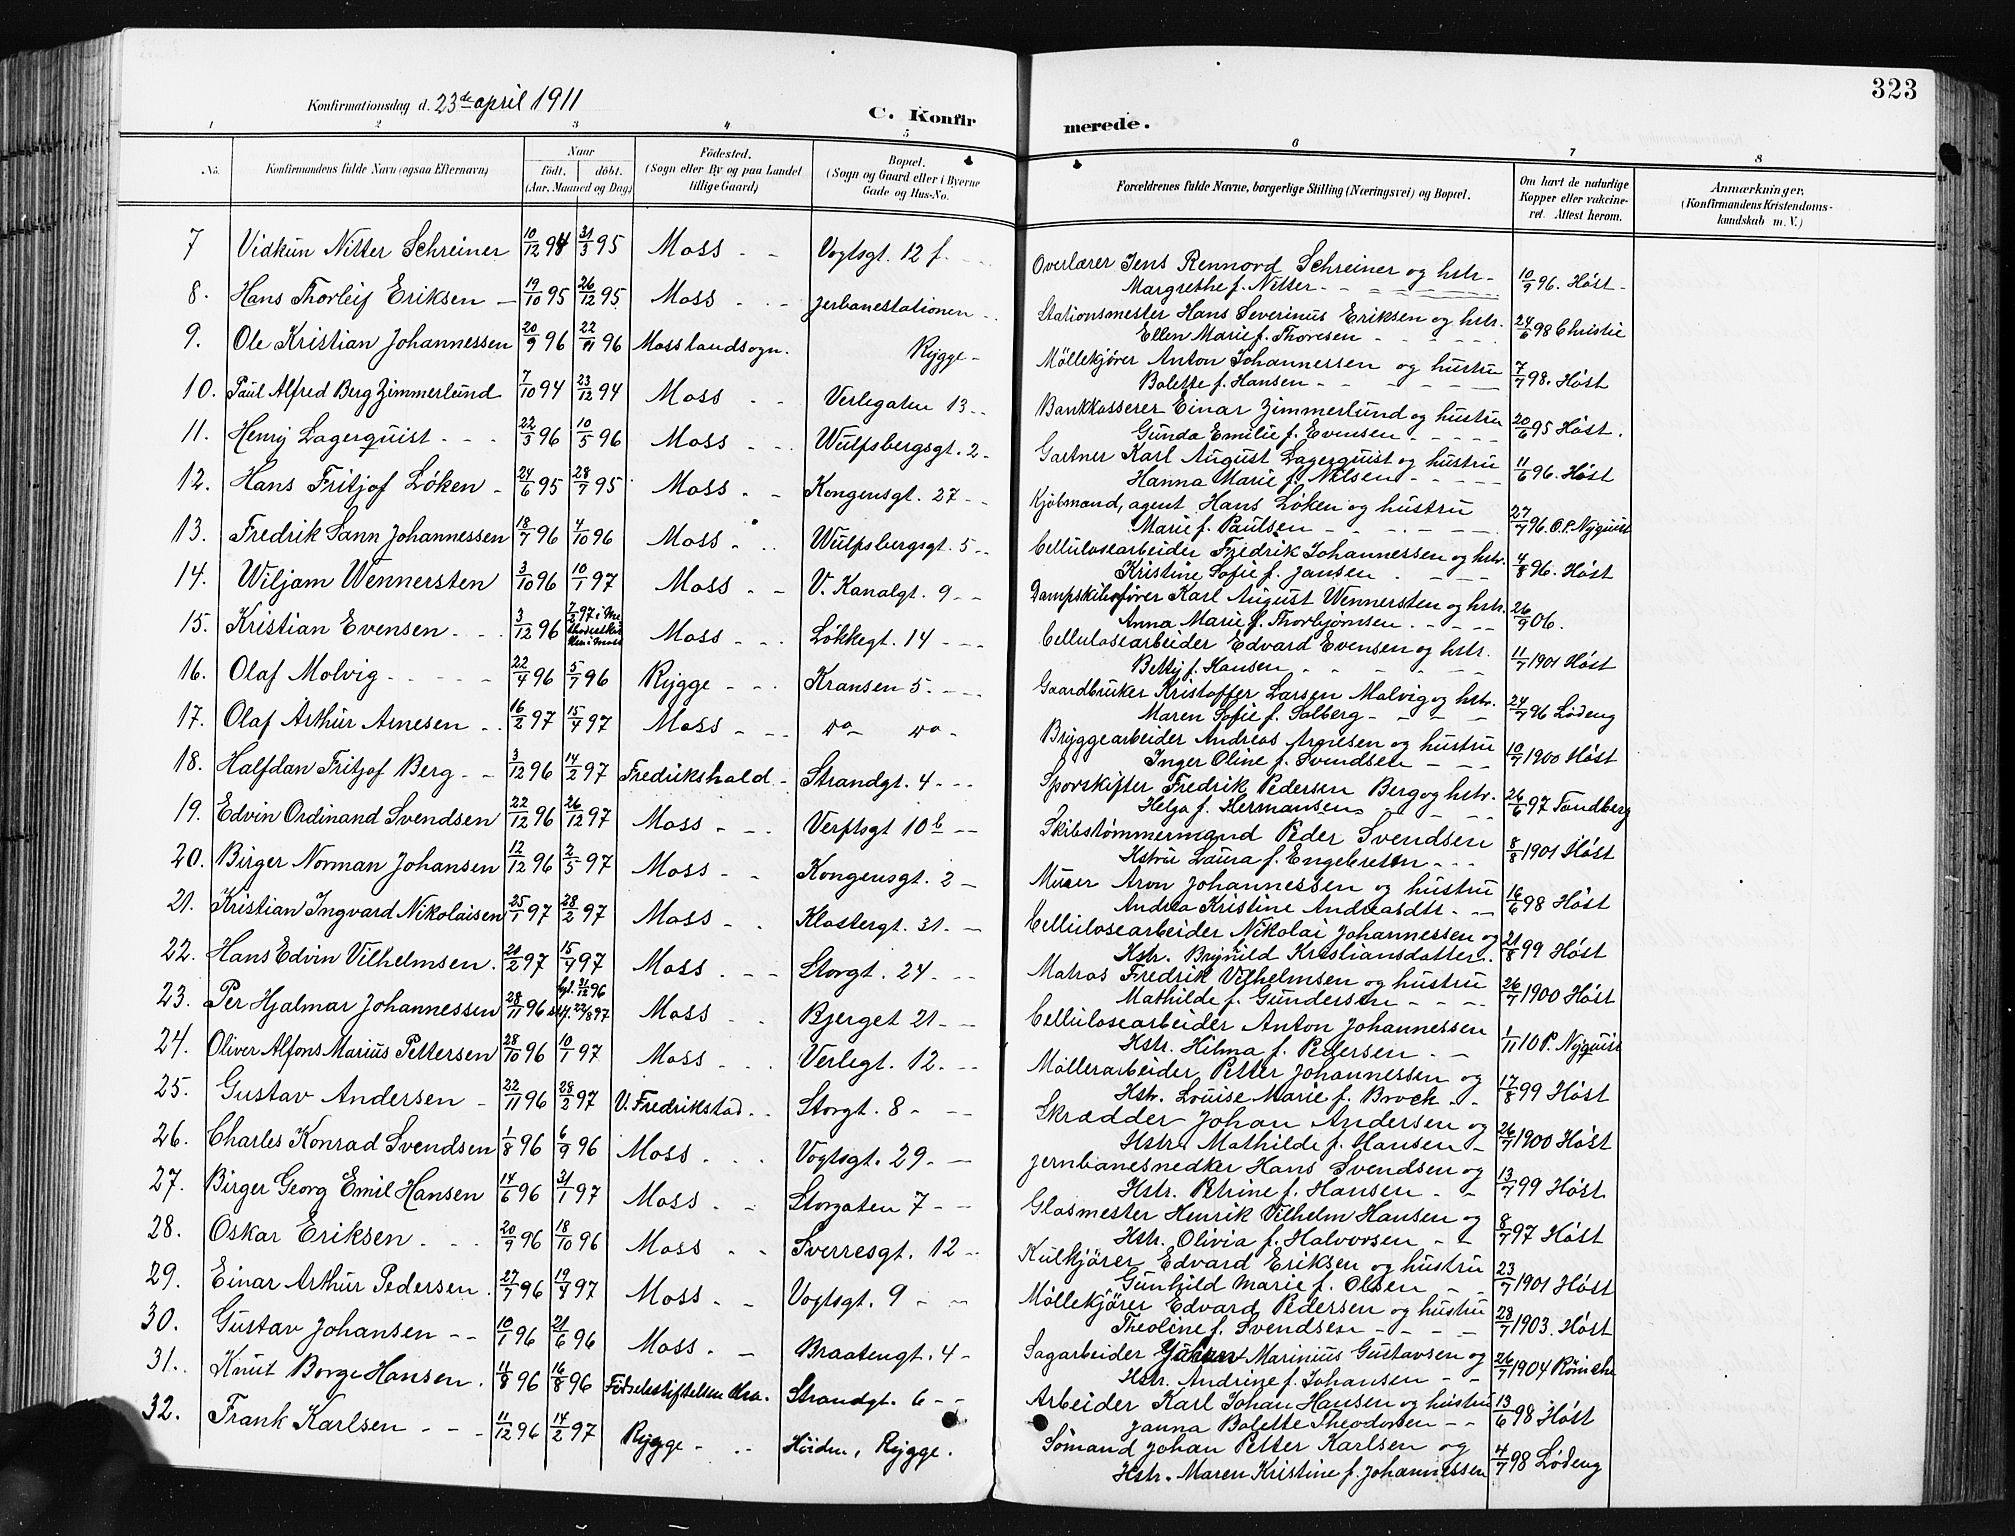 323
Konfirmationsdag d. 23de april 1911
C. Konfirmerede.
1 2 3 4 5 6 7 8
No. Konfirmandens fulde Navn (ogsaa Efternavn) Naar født. døbt. (Aar, Maaned og Dag) Fødested. (Sogn eller By og paa Landet tillige Gaard) Bopæl. (Sogn og Gaard eller i Byerne Gade og Hus-No. Forældrenes fulde Navne, borgerlige Stilling (Næringsvei) og Bopæl. Om havt de naturlige Kopper eller vakcineret. Attest herom. Anmærkninger. (Konfirmandens Kristendomskundskab m. V.)
7 Vidkun Nitter Schreiner 10/12 94 31/3 95 Moss Vogtsgt. 12 f. Overlærer Jens Rennord Schreiner og hstr. 10/9 96. Høst
Margrethe f. Nitter
8. Hans Thorleif Eriksen 19/10 95 26/12 95 Moss Jerbanestationen Stationsmester Hans Severinus Eriksen og hstr. 24/6 98 Christie
Ellen Marie f. Thoresen
9. Ole Kristian Johannessen 20/9 96 22/11 96 Mosslandsogn. Rygge Møllekjører Anton Johannessen og hustru 7/7 98. Høst
Bolette f. Hansen
10. Paul Alfred Berg Zimmerlund 7/10 94 23/12 94 Moss Verlegaten 13 Bankkasserer Einar Zimmerlund og hustru 20/6 95 Høst.
Gunda Emilie f. Evensen
11. Henry Lagerquist 22/3 96 10/5 96 Moss Wulfsbergsgt. 2 Gartner Karl August Lagerquist og hustru 11/6 96. Høst
Hanna Marie f. Nilsen
12. Hans Fritjof Løken 24/6 95 28/7 95 Moss Kongensgt. 27 Kjøbmand, agent Hans Løken og hustru 27/7 96. O.P. Nyquist
Marie f. Paulsen
13. Fredrik Sann Johannessen 18/7 96 4/10 96 Moss Wulfsbergsgt. 5 Cellulosearbeider Fredrik Johannessen og hstr. 4/8 96. Høst
Kristine Sofie f. Jansen
14. Wiljam Wennersten 3/10 96 10/1 97 Moss V. Kanalgt. 9 Dampskibsfører Karl August Wennersten og hstr. 26/9 06.
Anna Marie f. Thorbjørnsen
15. Kristian Evensen 3/12 96 7/2 97 i Moss Løkkegt. 14 Cellulosearbeider Edvard Evensen og hstr. 11/7 1901 Høst
Betty f. Hansen
16. Olaf Molvig 22/4 96 5/7 96 Rygge Kransen 5. Gaardbruker Kristoffer Larsen Malvig og hstr. 24/7 96 Lødeng
Maren Sofie f. Solberg
17. Olaf Arthur Arnesen 16/2 97 15/4 97 Moss do do Bryggearbeider Andreas Arnesen og hustru 10/7 1900 Høst
Inger Oline f. Svendsen
18. Halfdan Fritjof Berg 3/12 96 14/2 97 Fredrikshald Strandgt. 4 Sporskifter Fredrik Pedersen Berg og hstr. 26/6 97 Tandberg
Helga f. Hermansen
19. Edvin Ordinand Svendsen 22/12 96 26/12 97 Moss Verftsgt 10 b Skibstømmermand Peder Svendsen 8/8 1901 Høst
Hstru Laura f. Engebretsen
20. Birger Norman Johansen 12/12 96 2/5 97 Moss Kongensgt. 2 Murer Aron Johannessen og hustru 16/6 98 Høst
Andrea Kristine Andreasdtr.
21. Kristian Ingvard Nikolaisen 25/1 97 28/2 97 Moss Klostergt. 31. Cellulosearbeider Nikolai Johannessen og 21/8 99 Høst
Hstr. Brynhild Kristiansdatter.
22. Hans Edvin Vilhelmsen. 21/2 97 15/4 97 Moss Storgt. 24 Matros Fredrik Vilhelmsen og hustru 26/7 1900 Høst
Mathilde f. Gundersen
23. Per Hjalmar Johannessen 28/11 96 31/12 96 22/8 97 Moss Bjerget 21 Cellulosearbeider Anton Johannessen 1/11 10 P. Nyquist
Hstr. Hilma f. Pedersen
24. Oliver Alfons Marius Pettersen 28/10 96 10/1 97 Moss Verlegt. 12. Møllerarbeider Petter Johannessen og 17/8 99 Høst
Hstr. Louise Marie f. Brock
25. Gustav Andersen 22/11 96 28/2 97 V. Fredrikstad Storgt. 8 Skrædder Johan Andersen og 26/7 1900 Høst
Hstr. Mathilde f. Hansen
26. Charles Konrad Svendsen 1/8 96 6/9 96 Moss Vogtsgt. 29. Jernbanesnedker Hans Svendsen og 13/7 99 Høst
Hstr. Petrine f. Hansen
27. Birger Georg Emil Hansen 14/6 96 31/1 97 Moss Storgaten 7 Glasmester Henrik Vilhelm Hansen og 8/7 97 Høst
Hstr. Olivia f. Halvorsen
28. Oskar Eriksen 20/9 96 18/10 96 Moss Sverresgt. 12 Kulkjører Edvard Eriksen og hustru 23/7 1901 Høst
Gunhild Marie f. Olsen
29. Einar Arthur Pedersen 27/7 96 19/4 97 Moss Vogtsgt. 9 Møllekjører Edvard Pedersen og hustru 28/7 1903. Høst
Theoline f. Svendsen
30. Gustav Johansen 10/1 96 21/6 96 Moss Braatengt. 4 Sagarbeider Marinius Gustavsen og 26/7 1904 Rønche
Hstr. Andrine f. Johansen
31. Knut Borge Hansen. 11/8 96 16/8 96 Fødselsstiftelsen Kra. Strandgt. 6 Arbeider Karl Johan Hansen og hustru 13/6 98 Høst
Janna Bolette Theodorsen
32. Frank Karlsen 11/12 96 14/2 97 Rygge Høiden, Rygge. Sømand Johan Petter Karlsen og 4/7 98 Lødeng
Hstr. Maren Kristine f. Johannessen